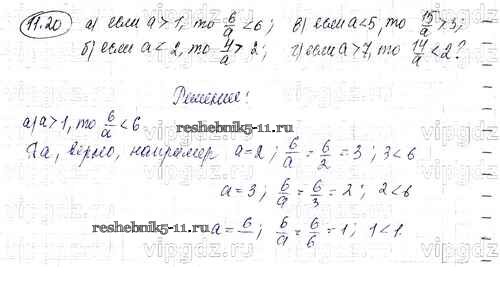 11.20 а) если a > 1, то 6/a < 6; в) если a < 5, то 15/a > 3;
б) если a < 2, то 4/a > 2; г) если a > 7, то 14/a < 2?
Решение:
а) a > 1, то 6/a < 6
reshebnik5-11.ru
Да, верно, например a = 2; 6/a = 6/2 = 3; 3 < 6
a = 3; 6/a = 6/3 = 2; 2 < 6
reshebnik5-11.ru
a = 6; 6/a = 6/6 = 1; 1 < 1.
vipgdz.com